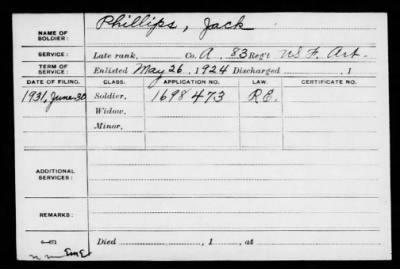 NAME OF SOLDIER: Phillips, Jack
SERVICE: Late rank, Co. A, 83 Reg't US F. Art.
TERM OF SERVICE: Enlisted May 26, 1924 Discharged , 1
DATE OF FILING. CLASS. APPLICATION NO. LAW. CERTIFICATE NO.
1931, June 30 Soldier, 1698473 R.E.
Widow,
Minor,
ADDITIONAL SERVICES:
REMARKS:
Died , 1 , at